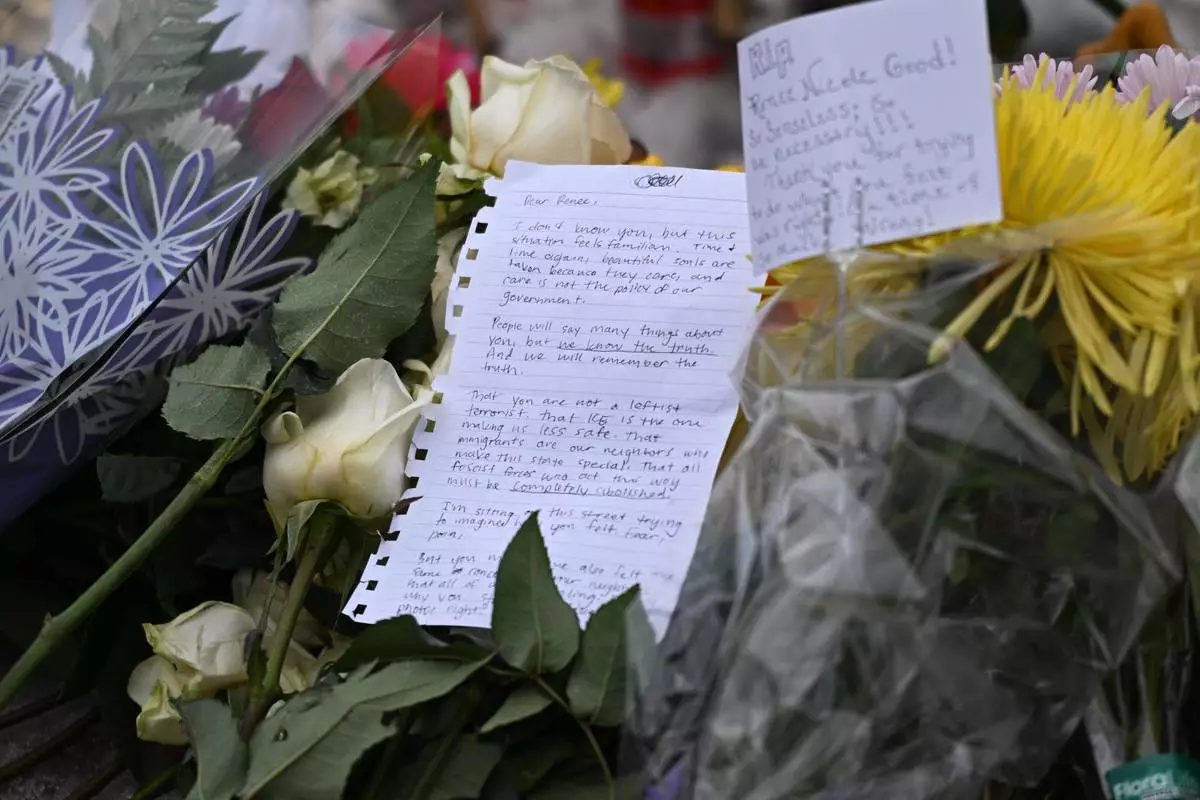 Dear Renee,
I don't know you, but this
situation feels familiar. Time &
time again, beautiful souls are
taken because they care, and
care is not the policy of our
government.
People will say many things about
you, but we know the truth.
And we will remember the
truth.
That you are not a leftist
terrorist. that ICE is the one
making us less safe. that
immigrants are our neighbors who
make this state special. that all
fascist forces who act this way
must be completely abolished.
I'm sitting on this street trying
to imagined you felt fear,
pain.
But you we also felt the
same
that all of our
why you
photos right
RIP
Renee Nicole Good!
So Senseless; So
Thank you for trying
to do what
was right
FloraLife